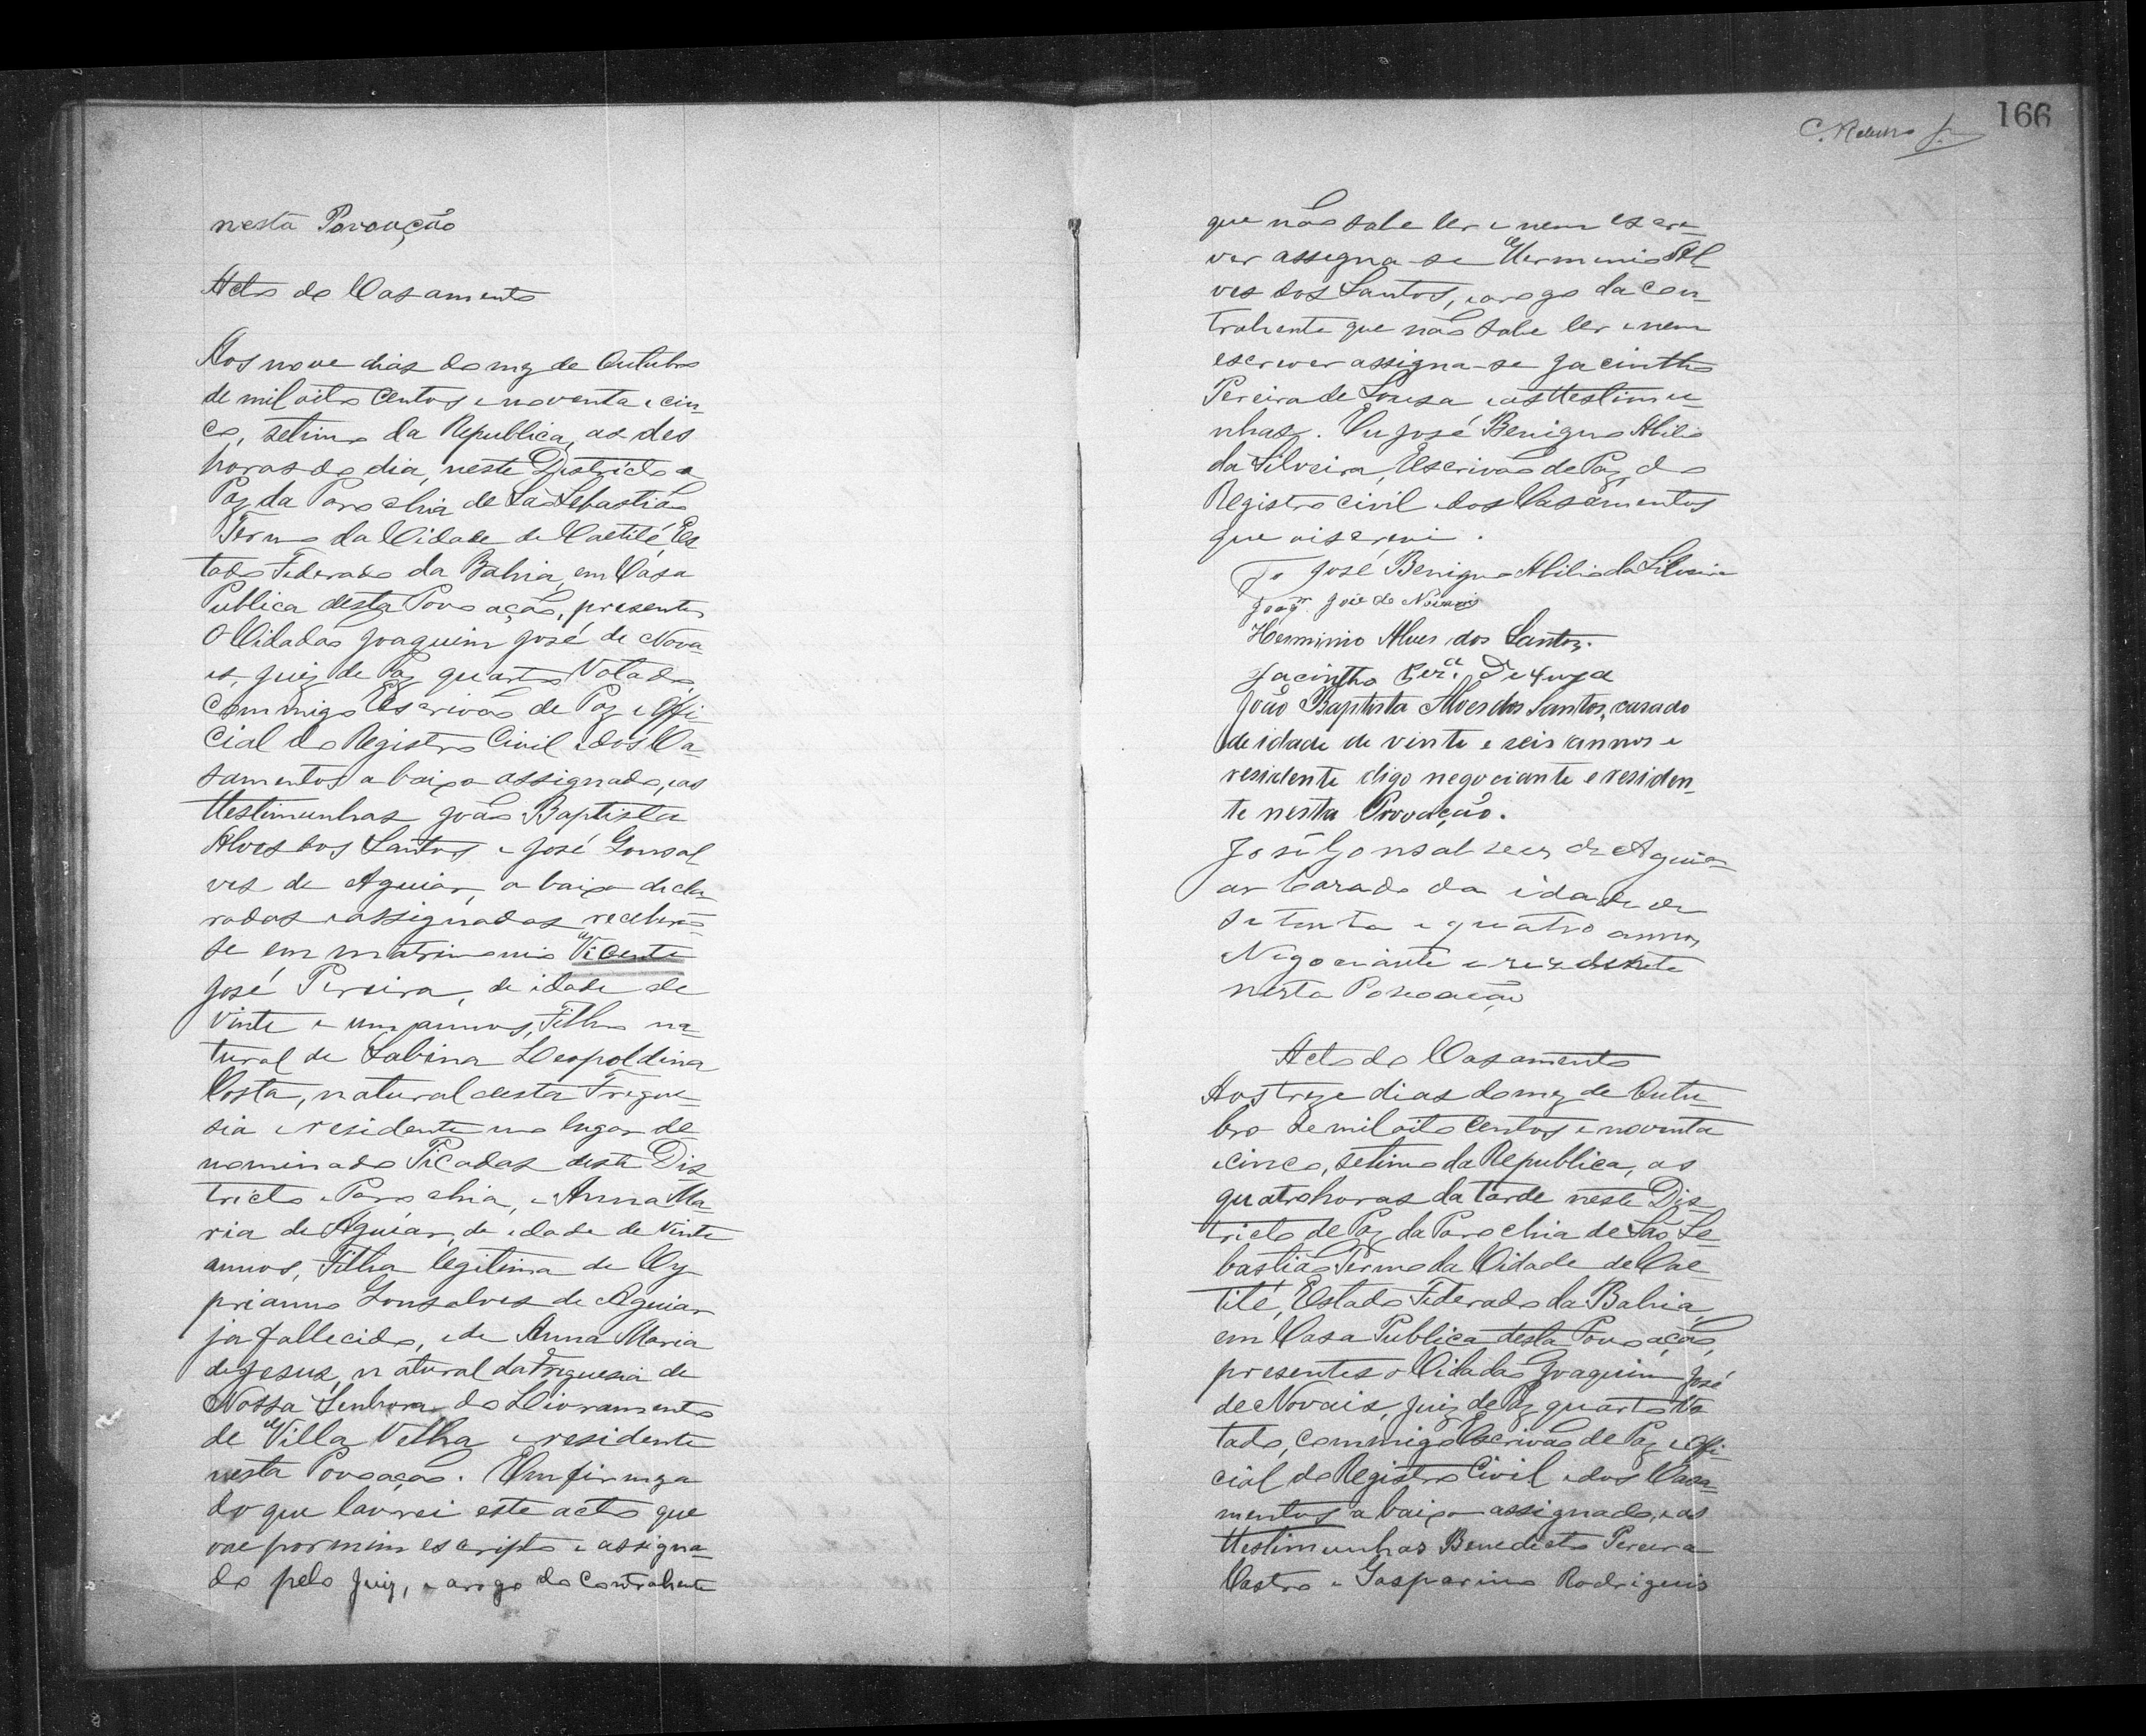 nesta Povoação
Acto do Casamento
Aos nove dias do mez de Outubro
de mil oito centos e noventa e cin-
co, setimo da Republica, as des
horas do dia, neste Districto de
Paz da Parochia de São Sebastião
Termo da Cidade de Caetité, Es
tado Federado da Bahia, em Casa
Publica desta Povoação, presentes
o Cidadão Joaquim José de Nova-
es, Juiz de Paz quarto Votado,
commigo Escrivão de Paz e Offi-
cial do Registro Civil e dos Ca-
samentos a baixo assignado, e as
ttestimunhas João Baptista
Alves dos Santos e José Gonsal
ves de Aguiar, a baixo decla-
rados e assignados, receberão
se em matrimonio Vicente
José Pereira, de idade de
vinte e um annos, Filho na-
tural de Sabina Leopoldina
Costa, natural desta Fregue-
sia e residente no lugar de
nominado Picadas deste Dis
tricto e Parochia, e Anna Ma-
ria de Aguiar, de idade de vinte
annos, Filha legitima de Cy-
prianno Gonsalves de Aguiar
ja fallecido, e de Anna Maria
de Jesus, natural da Freguesia de
Nossa Senhora do Livramento
de Villa Velha e residente
nesta Povoação. Em firmeza
do que lavrei este acto que
vae por mim escripto e assigna-
do pelo Juiz, e arogo do Contrahente
166
que não sabe ler e nem escre-
ver assegna-se Herminio Al
ves dos Santos, e arogo da con-
trahente que não sabe ler e nem
escrever assigna-se Jacintho
Pereira de Sousa e as ttestimu-
nhas. Eu José Benigno Abilio
da Silveira, Escrivão de Paz do
Registro civil e dos Casamentos
que o iscrevi.
José Benigno Abilio da Silveira
Joaqm José de Novais
Herminio Alves dos Santos.
Jacintho Perª. De Souza
João Baptista Alves dos Santos, casado
de idade de vinte e seis annos e
residente digo negociante e residen-
te nesta Povoação.
José Gonsalves de Aguia-
ar Casado da idade de
setenta e quatro annos
Negociante e rezidente
nesta Povoação
Acto do Casamento
Aos treze dias do mez de Outu-
bro de mil oito centos e noventa
e cinco, setimo da Republica, as
quatro horas da tarde neste Dis
tricto de Paz da Parochia de São Se-
bastião Termo da Cidade de Cae-
tité, Estado Federado da Bahia,
em Casa Publica desta Povoação,
presentes o Cidadão Joaquim José
de Novais, Juiz de Paz quarto Vo
tado, commigo Escrivão de Paz e Offi-
cial do Registro Civil e dos Casa-
mentos a baixo assignado, e as
ttestimunhas Benedicto Pereira
Castro e Gasparino Rodrigues